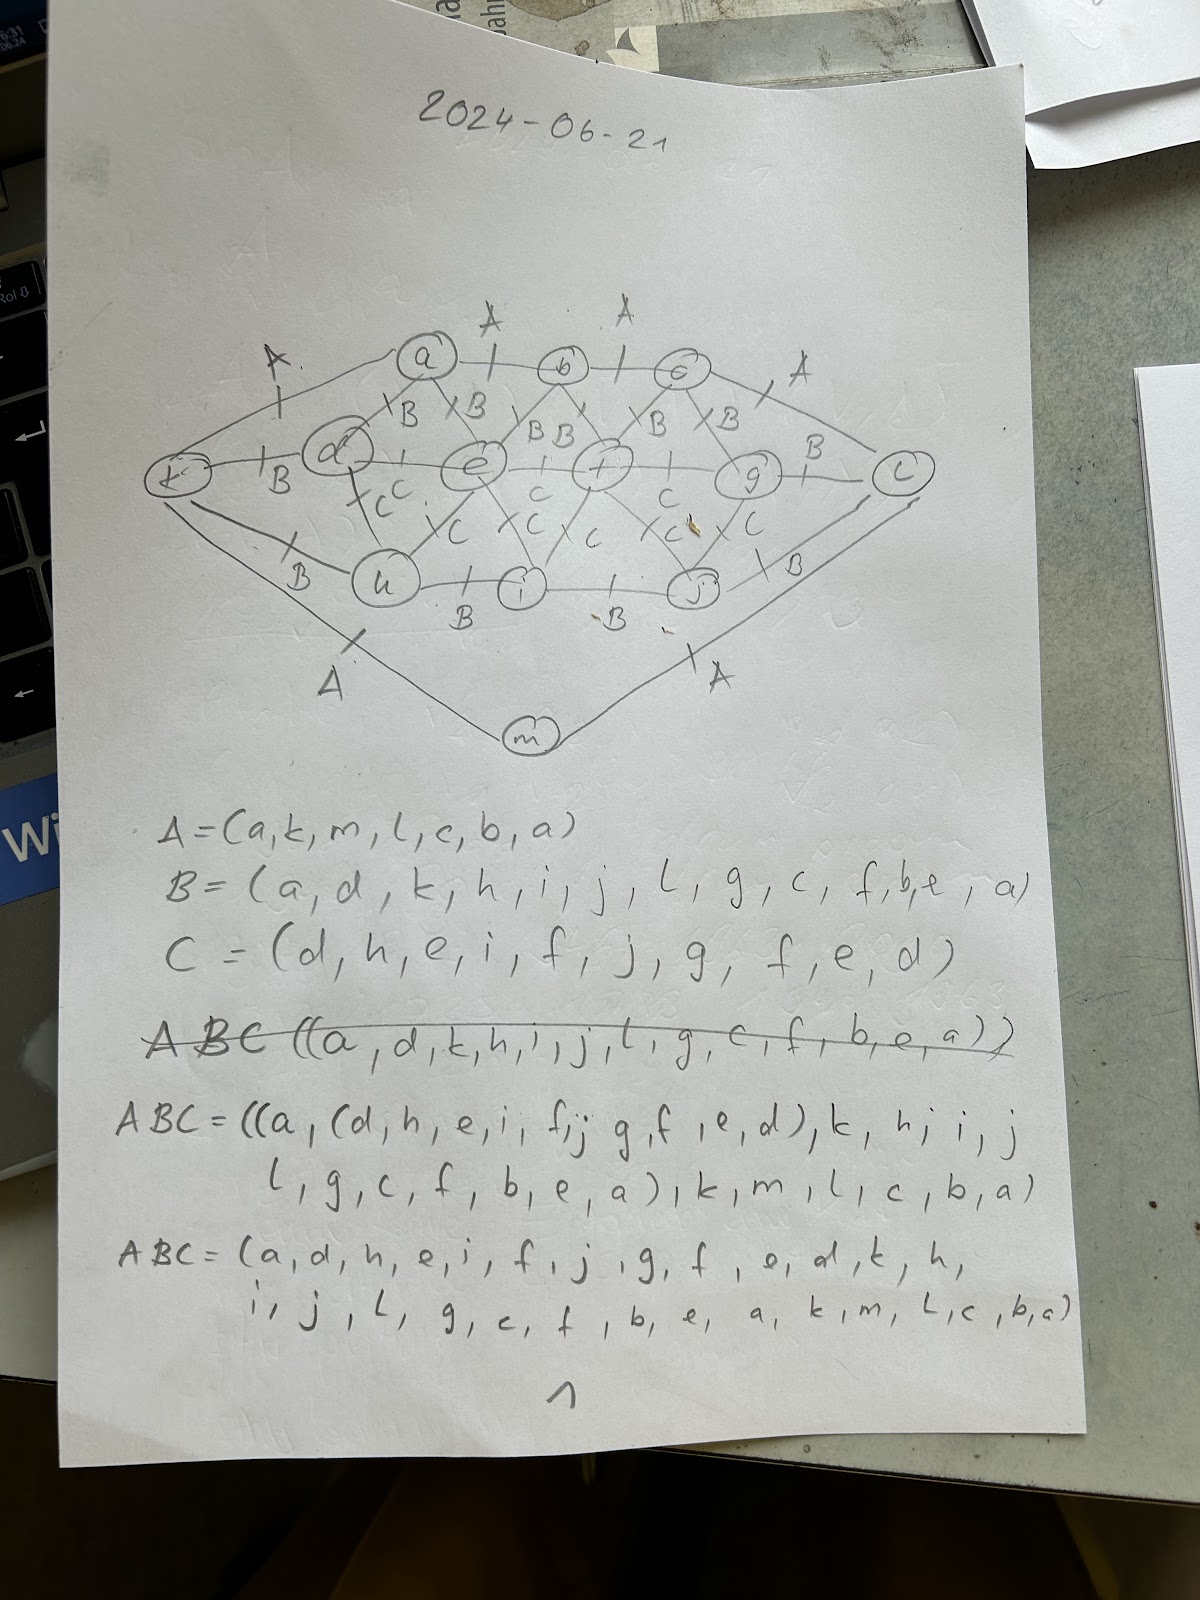 2024-06-21
A A
A a b c A
B B B B B B B
k B d C e C f C g l
C C C C C C
B h B i B j B
A A
m
A=(a,k,m,l,c,b,a)
B=(a,d,k,h,i,j,l,g,c,f,b,e,a)
C=(d,h,e,i,f,j,g,f,e,d)
ABC((a,d,k,h,i,j,l,g,c,f,b,e,a))
ABC=((a,(d,h,e,i,f,j,g,f,e,d),k,h,i,j
l,g,c,f,b,e,a),k,m,l,c,b,a)
ABC=(a,d,h,e,i,f,j,g,f,e,d,k,h,
i,j,l,g,c,f,b,e,a,k,m,l,c,b,a)
1
Wi